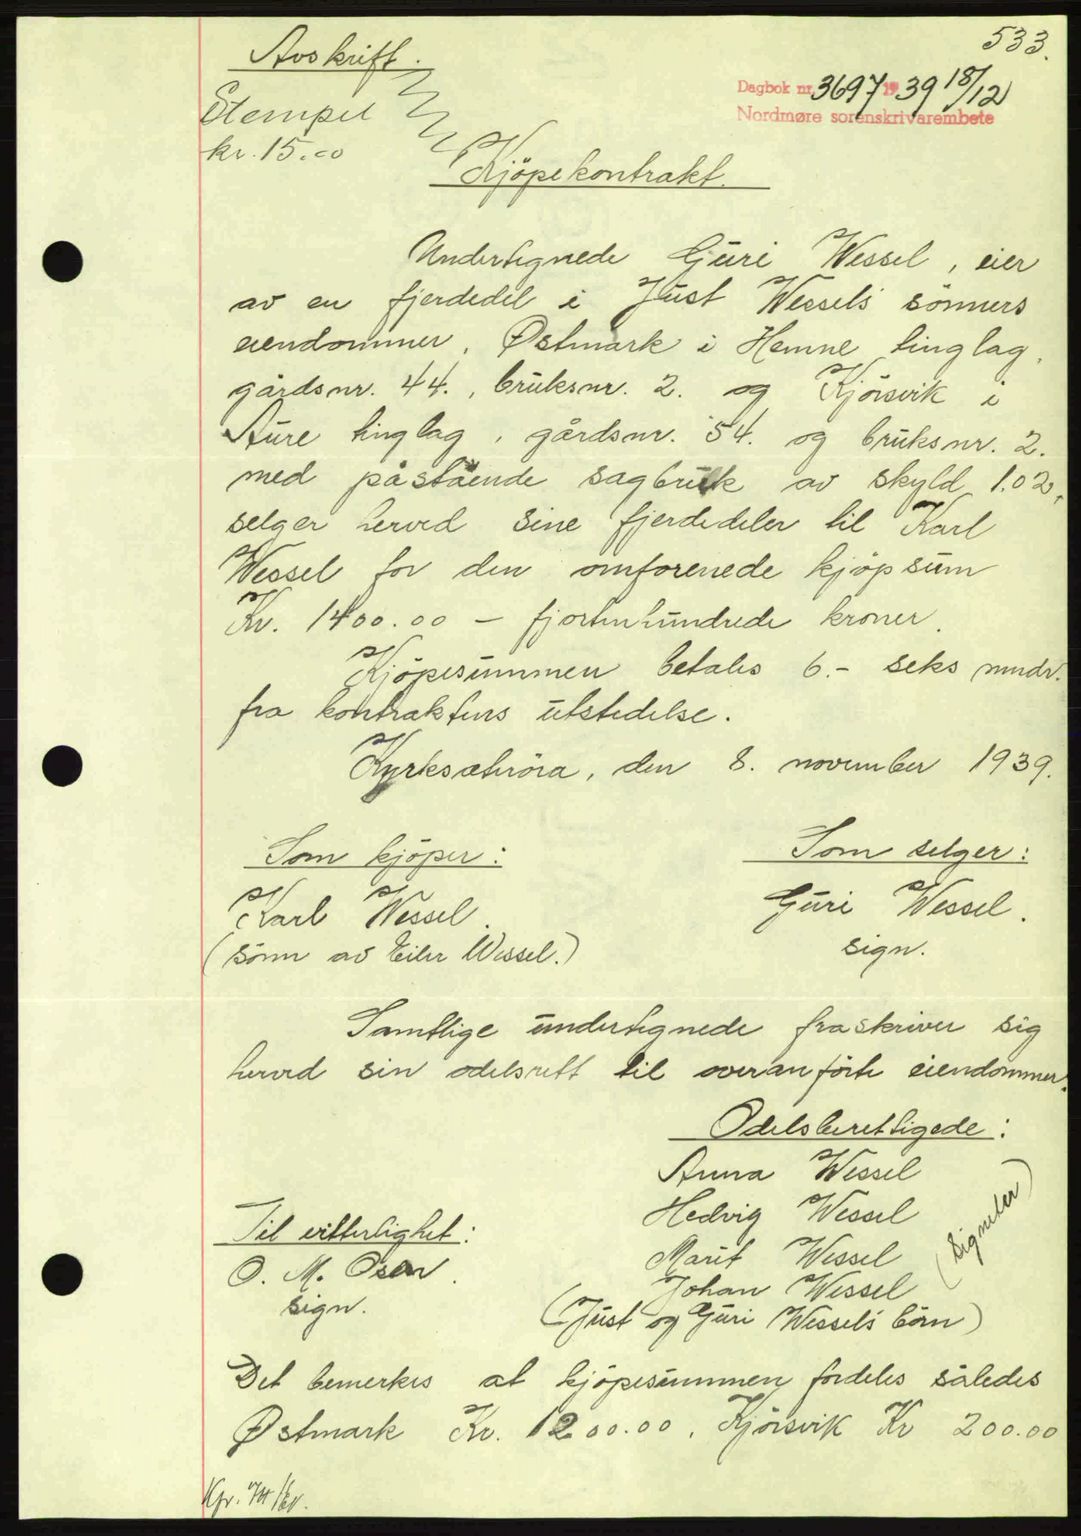 533.
Avskrift.
Dagbok nr. 3697 1939 18/12
Nordmøre sorenskrivarembete
Stempel
kr. 15.00
Kjöpekontrakt.
Undertegnede Guri Wessel, eier
av en fjerdedel i Just Wessels sönners
eiendommer, Østmark i Hemne tinglag,
gårdsnr. 44., bruksnr. 2. og Kjörsvik i
Aure tinglag, gårdsnr. 54. og bruksnr. 2.
med påstående sagbruk av skyld 1.02,
selger herved sine fjerdedeler til Karl
Wessel for den omforenede kjöpsum
Kr. 1400.00 - fjortenhundrede kroner.
Kjöpesummen betales 6.- seks mndr.
fra kontraktens utstedelse.
Kyrksæteröra, den 8. november 1939.
Som kjöper:
Som selger:
Karl Wessel.
Guri Wessel.
(sönn av Eiler Wessel.)
sign.
Samtlige undertegnede fraskriver sig
herved sin odelsrett til overanförte eiendommer.
Odelsberettigede:
Anna Wessel
Hedvig Wessel
Til vitterlighet:
(Signeter)
Marit Wessel
O. M. Osen.
Johan Wessel
sign.
(Just og Guri Wessels börn)
Det bemerkes at kjöpesummen fordeles således
Østmark Kr. 1200.00, Kjörsvik Kr 200.00